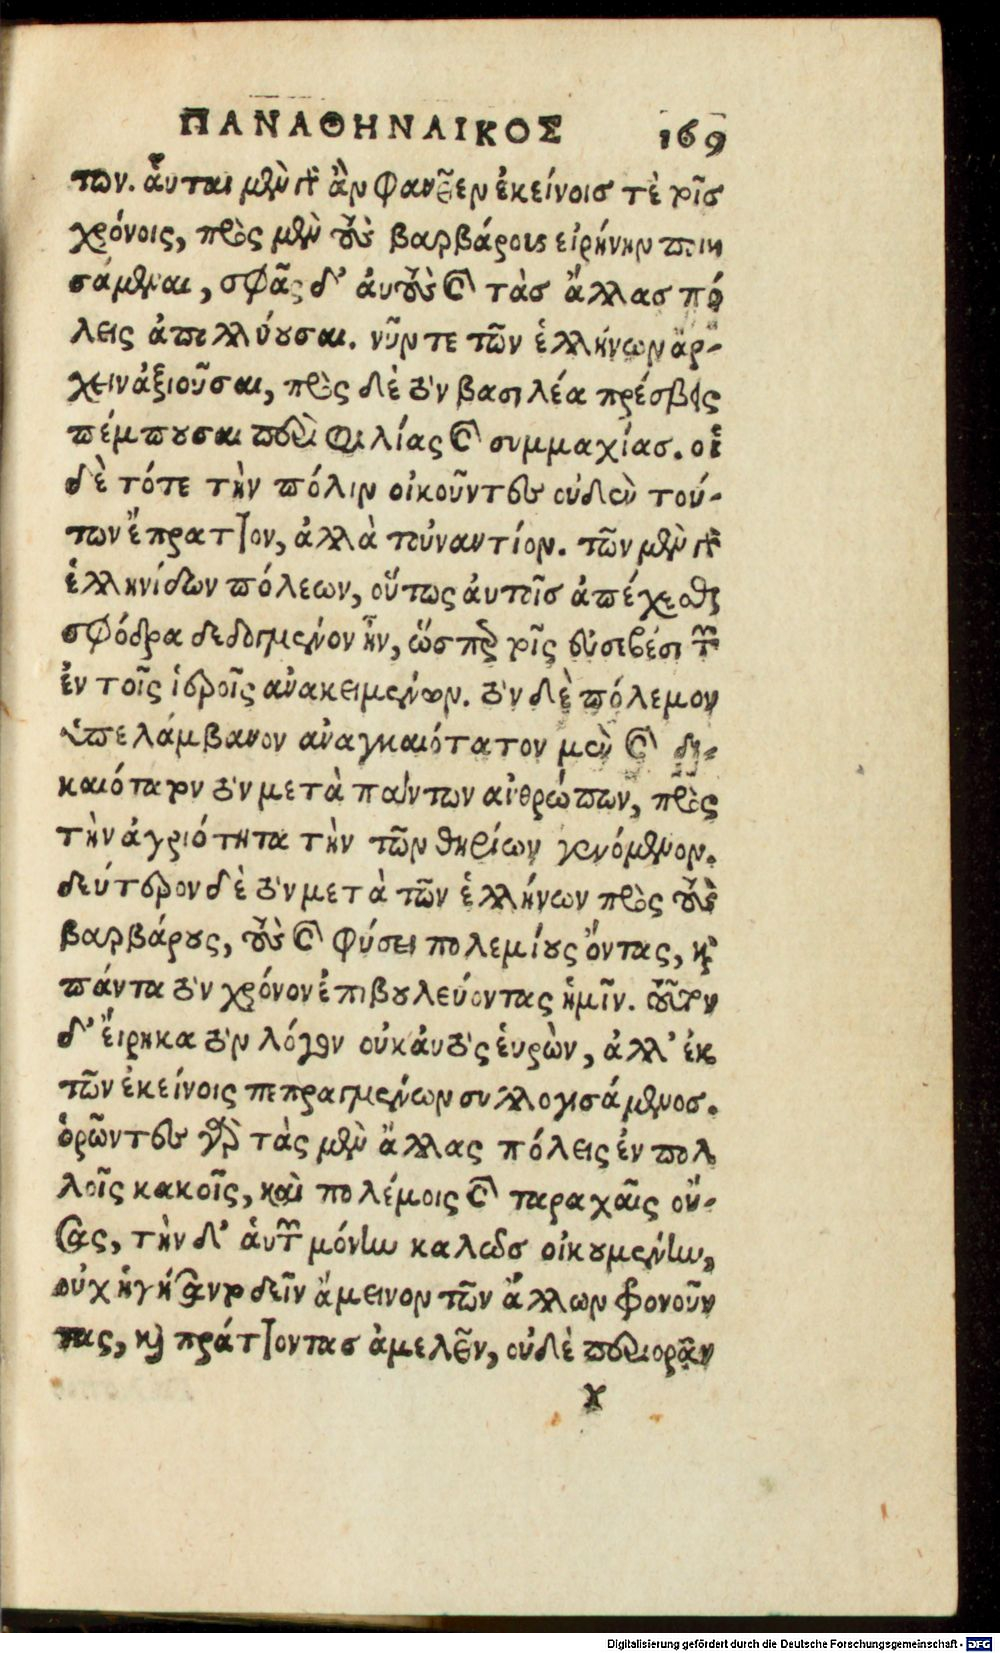 ΠΑΝΑΘΗΝΑΙΚΟΣ 169
των. ἆυται μὲν γὰρ ἂν φανεῖεν ἐκείνοισ τὲ τοῖσ
χρόνοις, πρὸς μὲν τοὺς βαρβάρους εἰρήνην ποιη
σάμεναι, σφᾶς δ' ἀυτοὺς καὶ τὰσ ἄλλασ πό
λεις ἀπολλύουσαι. νῦν τε τῶν ἑλλήνων ἄρ-
χειν ἀξιοῦσαι, πρὸς δὲ τὸν βασιλέα πρέσβεις
πέμπουσαι περὶ φιλίας καὶ συμμαχίασ. οἱ
δὲ τότε τὴν πόλιν οἰκοῦντες οὐδὲν τού-
των ἔπραττον, ἀλλὰ τοὐναντίον. τῶν μὲν γὰρ
ἑλληνίδων πόλεων, οὕτως ἀυτοῖσ ἀπέχεσθαι
σφόδρα δεδογμένον ἦν, ὥσπερ τοῖς εὐσεβέσι τῶν
ἐν τοῖς ἱεροῖς ἀνακειμένων. τὸν δὲ πόλεμον
ὑπελάμβανον ἀναγκαιότατον μὲν καὶ δι-
καιότατον τὸν μετὰ πάντων ἀνθρώπων, πρὸς
τὴν ἀγριότητα τὴν τῶν θηρίων γενόμενον.
δεύτερον δὲ τὸν μετὰ τῶν ἑλλήνων πρὸς τοὺς
βαρβάρους, τοὺς καὶ φύσει πολεμίους ὄντας, καὶ
πάντα τὸν χρόνον ἐπιβουλεύοντας ἡμῖν. τοῦτον
δ' ἔιρηκα τὸν λόγον οὐκ ἀυτὸς ἑυρὼν, ἀλλ' ἐκ
τῶν ἐκείνοις πεπραγμένων συλλογισάμενοσ.
ὁρῶντες γὰρ τὰς μὲν ἄλλας πόλεις ἐν πολ
λοῖς κακοῖς, καὶ πολέμοις καὶ ταραχαῖς οὔ-
σας, τὴν δ' ἁυτῶν μόνην καλῶσ οἰκουμένην,
οὐχ ἡγήσαντο δεῖν ἄμεινον τῶν ἄλλων φρονοῦν
τας, καὶ πράττοντασ ἀμελεῖν, οὐδὲ περιορᾶν
χ
Digitalisierung gefördert durch die Deutsche Forschungsgemeinschaft - DFG